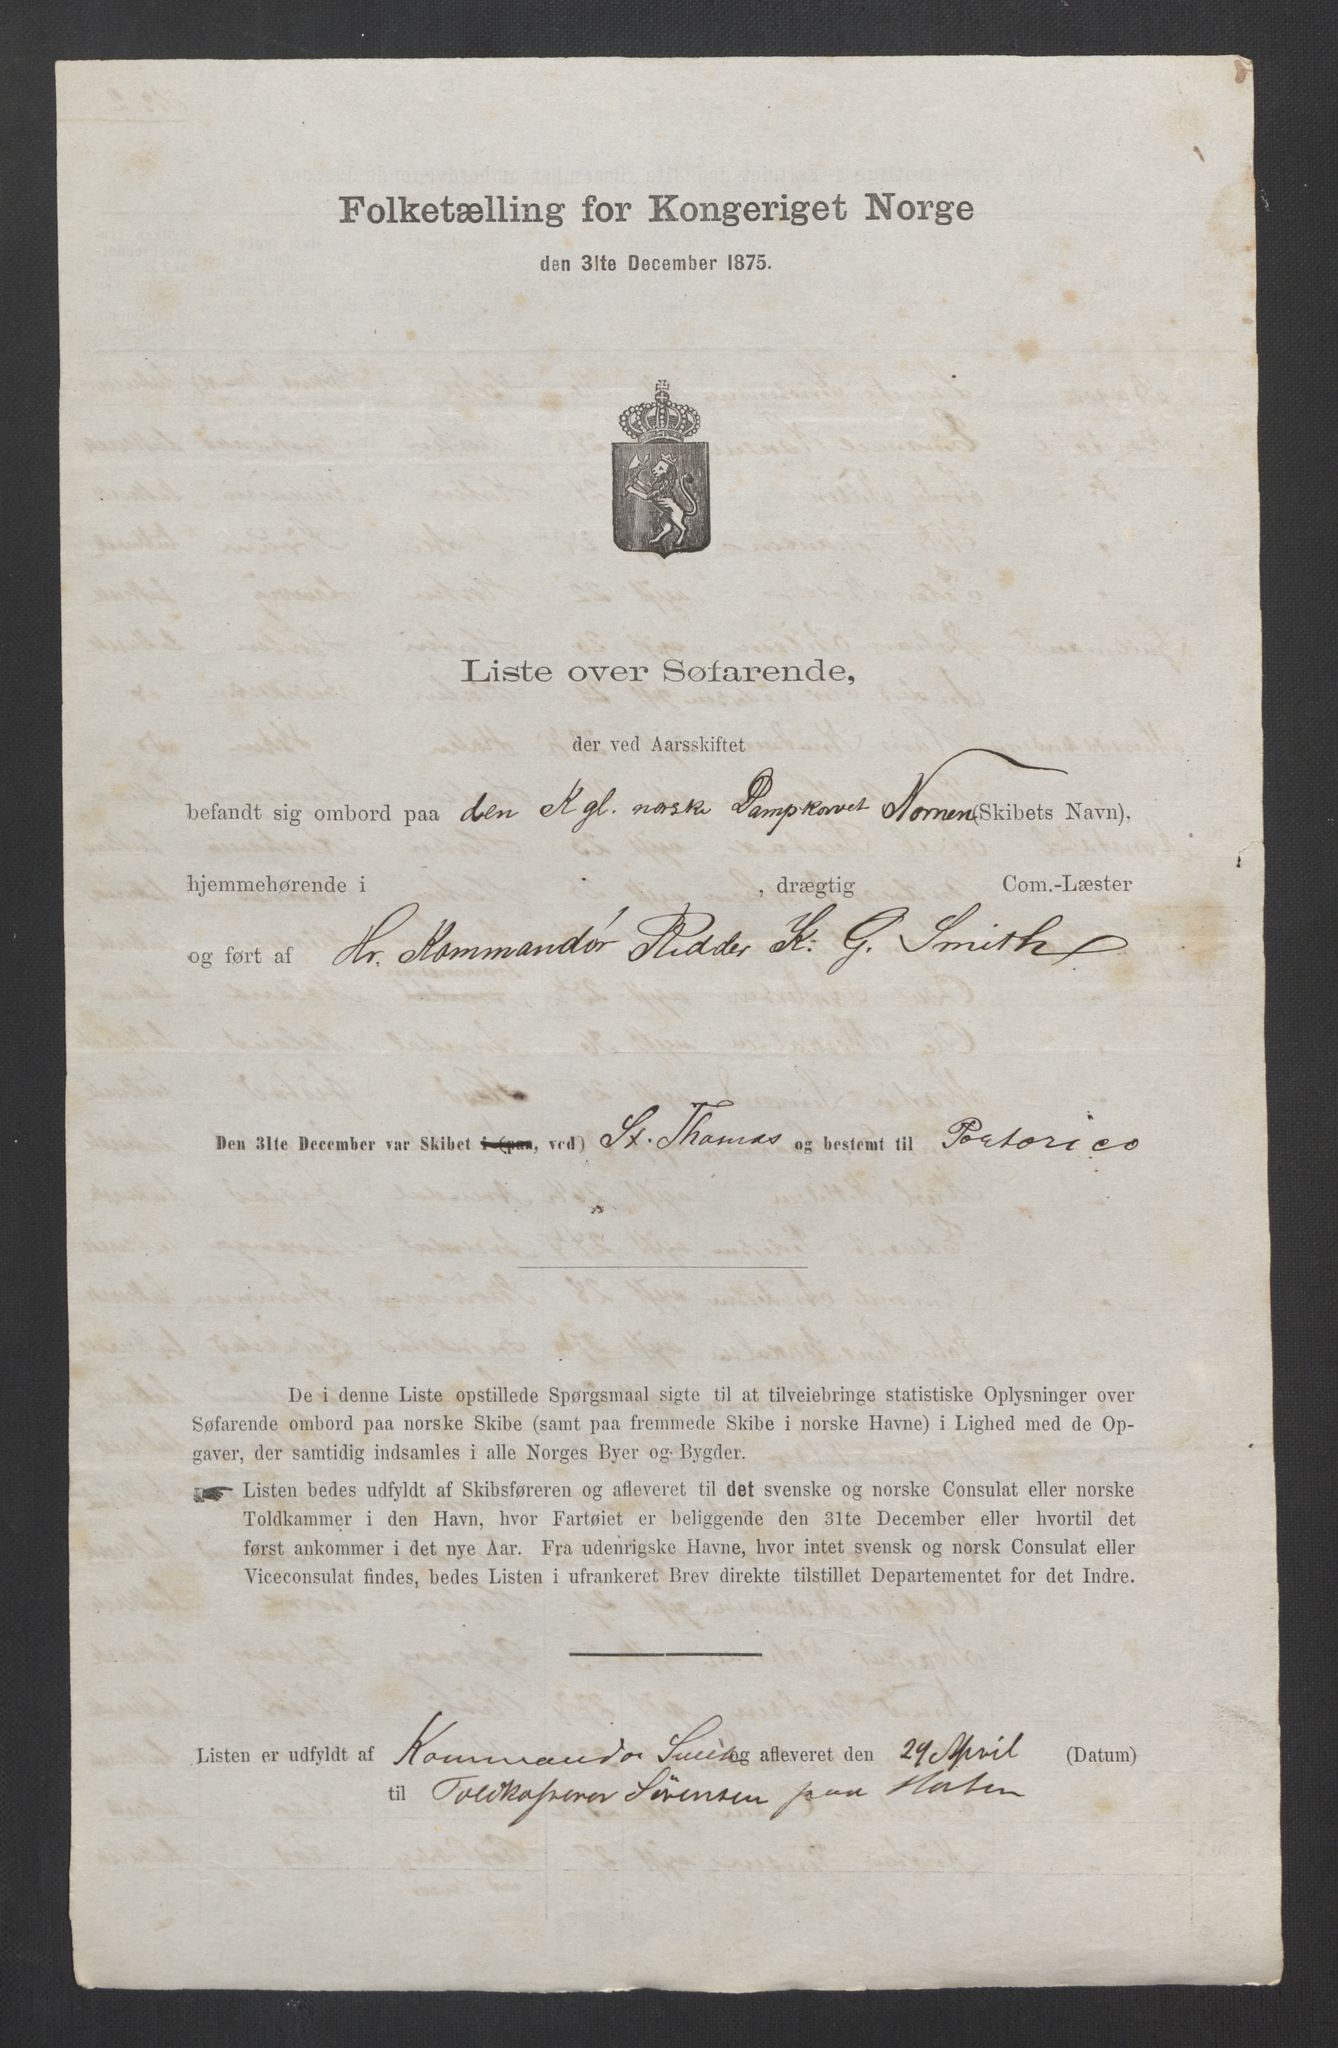 Folketælling for Kongeriget Norge
den 31te December 1875.
Liste over Søfarende,
der ved Aarsskiftet
befandt sig ombord paa den Kgl. norske Dampkorvet Nornen (Skibets Navn),
hjemmehørende i , drægtig Com.-Læster
og ført af Hr. Kommandør Ridder K. G. Smith
Den 31te December var Skibet i (paa, ved) St. Thomas og bestemt til Portorico
De i denne Liste opstillede Spørgsmaal sigte til at tilveiebringe statistiske Oplysninger over
Søfarende ombord paa norske Skibe (samt paa fremmede Skibe i norske Havne) i Lighed med de Op-
gaver, der samtidig indsamles i alle Norges Byer og Bygder.
Listen bedes udfyldt af Skibsføreren og afleveret til det svenske og norske Consulat eller norske
Toldkammer i den Havn, hvor Fartøiet er beliggende den 31te December eller hvortil det
først ankommer i det nye Aar. Fra udenrigske Havne, hvor intet svensk og norsk Consulat eller
Viceconsulat findes, bedes Listen i ufrankeret Brev direkte tilstillet Departementet for det Indre.
Listen er udfyldt af Kommandør Smith og afleveret den 29 April (Datum)
til Toldkasserer Sørensen paa Horten